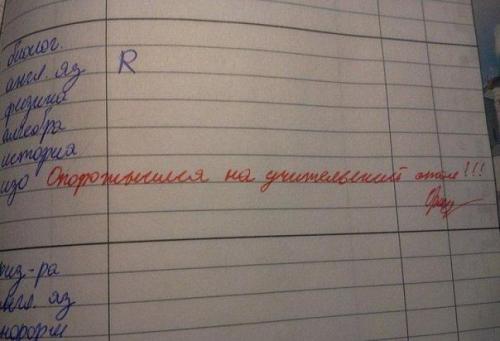 биолог.
англ. яз R
физика
алгебра
история
изо Опорожнился на учительский стол!!!
из-ра
нгл. яз
нформ